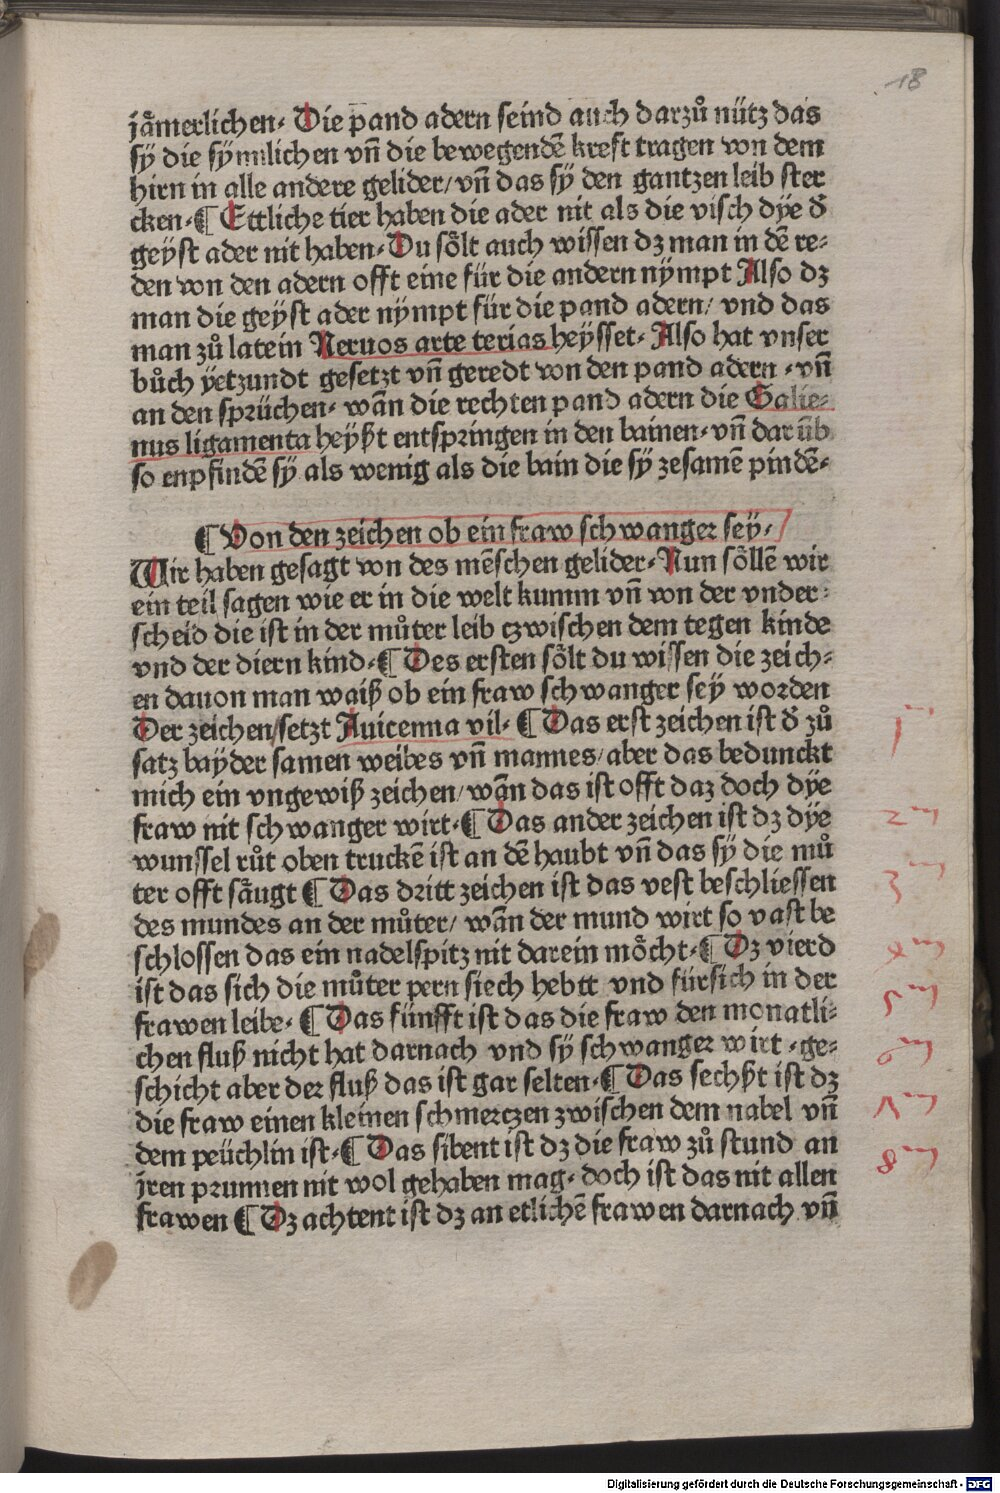 18
jåmerlichen. Die pand adern seind auch darzů nütz das
sÿ die sÿnnlichen vñ die bewegendē kreft tragen von dem
hirn in alle andere gelider/ vñ das sÿ den gantzen leib ster
cken. ¶ Ettliche tier haben die ader nit als die visch dÿe đ
geÿst ader nit haben. Du sölt auch wissen dz man in dē re-
den von den adern offt eine für die andern nÿmpt Also dz
man die geÿst ader nÿmpt für die pand adern/ vnd das
man zů latein Neruos arte terias heÿsset. Also hat vnser
bůch ÿetzundt gesetzt vñ geredt von den pand adern . vñ
an den sprüchen. wañ die rechten pand adern die Galie-
nus ligamenta heÿßt entspringen in den bainen. vñ dar üb
so enpfindē sÿ als wenig als die bain die sÿ zesamē pindē.
¶ Von den zeichen ob ein fraw schwanger seÿ.
Wir haben gesagt von des mēschen gelider. Nun söllē wir
ein teil sagen wie er in die welt kumm vñ von der vnder-
scheid die ist in der můter leib czwischen dem tegen kinde
vnd der diern kind. ¶ Des ersten sölt du wissen die zeich-
en dauon man waiß ob ein fraw schwanger seÿ worden
Der zeichen/ setzt Auicenna vil. ¶ Das erst zeichen ist đ zů
satz baÿder samen weibes vñ mannes/ aber das bedunckt
mich ein vngewiß zeichen/ wañ das ist offt daz doch dÿe
fraw nit schwanger wirt. ¶ Das ander zeichen ist dz dÿe
wunssel růt oben truckē ist an dē haubt vñ das sÿ die mů
ter offt säugt ¶ Das dritt zeichen ist das vest beschliessen
des mundes an der můter/ wañ der mund wirt so vast be
schlossen das ein nadelspitz nit darein möcht. ¶ Dz vierd
ist das sich die můter pern siech hebtt vnd fürsich in der
frawen leibe. ¶ Das fünfft ist das die fraw den monatli-
chen fluß nicht hat darnach vnd sÿ schwanger wirt . ge-
schicht aber der fluß das ist gar selten. ¶ Das sechßt ist dz
die fraw einen kleinen schmerczen zwischen dem nabel vñ
dem peüchlin ist. ¶ Das sibent ist dz die fraw zů stund an
jren prunnen nit wol gehaben mag. doch ist das nit allen
frawen ¶ Dz achtent ist dz an etlichē frawen darnach vñ
1m
2m
3m
4m
5m
6m
7m
8m
Digitalisierung gefördert durch die Deutsche Forschungsgemeinschaft - DFG